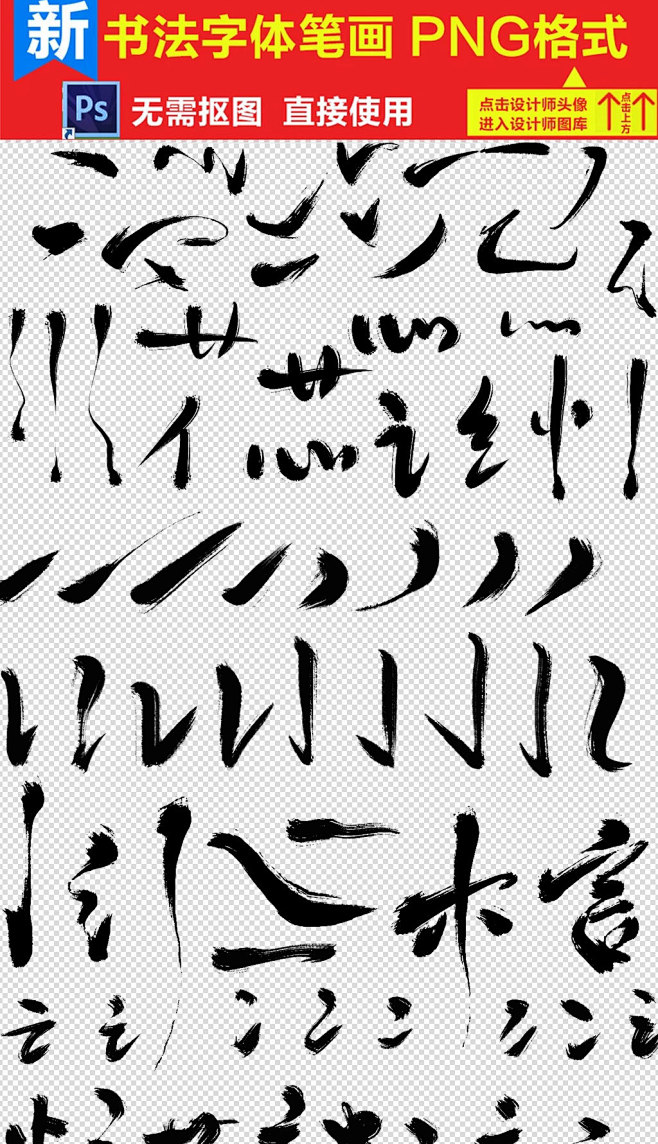 新 书法字体笔画 PNG格式
Ps 无需抠图 直接使用
点击设计师头像
进入设计师图库
点击上方